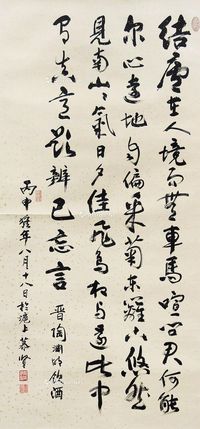 結廬在人境而無車馬喧問君何能
尔心遠地自偏采菊東籬下悠然
見南山々氣日夕佳飛鳥相与還此中
有真意欲辨已忘言 晋陶渊明飲酒
丙申猴年八月十八日於滬上